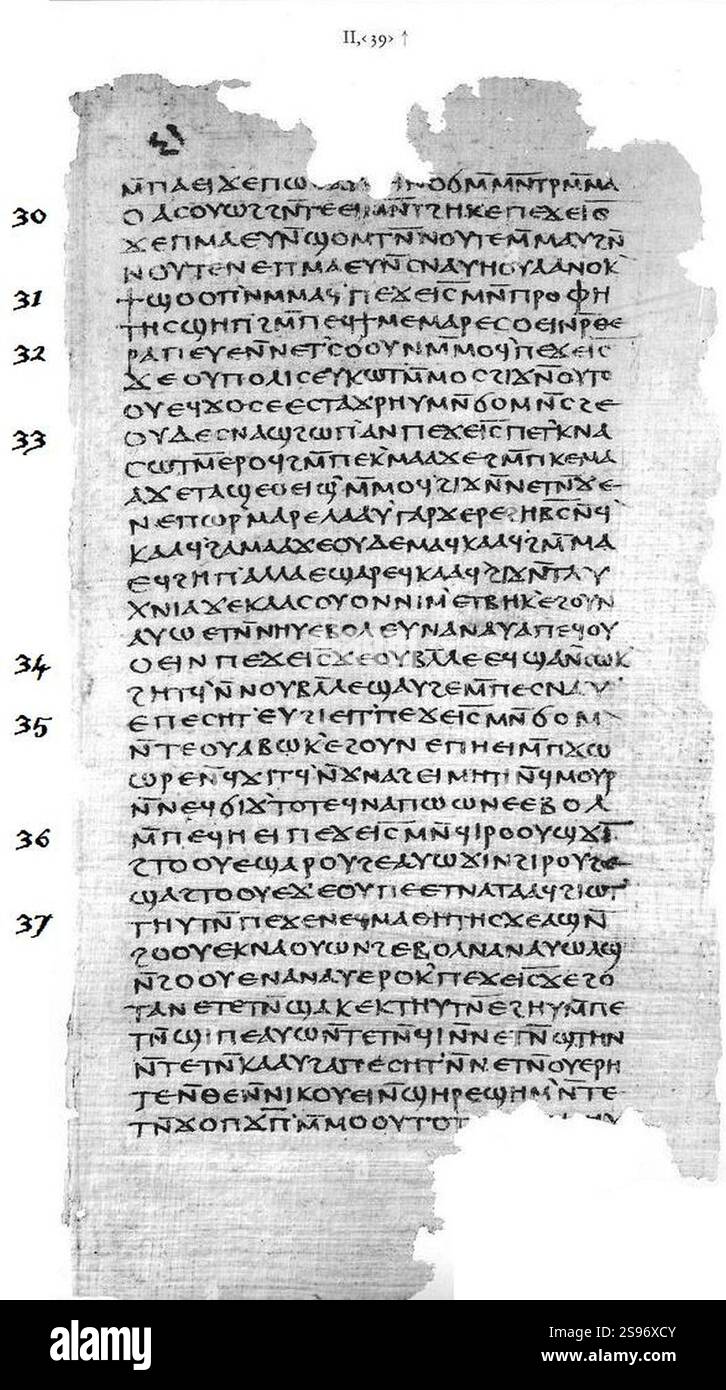 II,‹39› ↑
ⲙ̄ⲡⲁⲉⲓϫⲉⲡⲱ ⲛⲟϭⲙ̄ⲙⲛ̄ⲧⲣⲙ̄ⲙⲁ
30 ⲟⲁⲥⲟⲩⲱϩϩⲛ̄ⲧⲉⲉⲓⲙⲛ̄ⲧϩⲏⲕⲉⲡⲉϫⲉⲓ̅ⲥ̅
ϫⲉⲡⲙⲁⲉⲩⲛ̄ϣⲟⲙⲧⲛ̄ⲛⲟⲩⲧⲉⲙ̄ⲙⲁⲩϩⲛ̄
ⲛⲟⲩⲧⲉⲛⲉⲡⲙⲁⲉⲩⲛ̄ⲥⲛⲁⲩⲏⲟⲩⲁⲁⲛⲟⲕ
31 ϯϣⲟⲟⲡⲛⲙ̄ⲙⲁϥⲡⲉϫⲉⲓ̅ⲥ̅ⲙⲛ̄ⲡⲣⲟⲫⲏ
ⲧⲏⲥϣⲏⲡϩⲙ̄ⲡⲉϥϯⲙⲉⲙⲁⲣⲉⲥⲟⲉⲓⲛⲣ̄ⲑⲉ
32 ⲣⲁⲡⲉⲩⲉⲛ̄ⲛⲉⲧⲥⲟⲟⲩⲛⲙ̄ⲙⲟϥⲡⲉϫⲉⲓ̅ⲥ̅
ϫⲉⲟⲩⲡⲟⲗⲓⲥⲉⲩⲕⲱⲧⲙ̄ⲙⲟⲥϩⲓϫⲛ̄ⲟⲩⲧⲟ
ⲟⲩⲉϥϫⲟⲥⲉⲉⲥⲧⲁϫⲣⲏⲩⲙⲛ̄ϭⲟⲙⲛ̄ⲥϩⲉ
33 ⲟⲩⲇⲉⲥⲛⲁϣϩⲱⲡⲁⲛⲡⲉϫⲉⲓ̅ⲥ̅ⲡⲉⲧⲕⲛⲁ
ⲥⲱⲧⲙ̄ⲉⲣⲟϥϩⲙ̄ⲡⲉⲕⲙⲁⲁϫⲉϩⲙ̄ⲡⲕⲉⲙⲁ
ⲁϫⲉⲧⲁϣⲉⲟⲉⲓϣⲙ̄ⲙⲟϥϩⲓϫⲛ̄ⲛⲉⲧⲛ̄ϫⲉ
ⲛⲉⲡⲱⲣⲙⲁⲣⲉⲗⲁⲁⲩⲅⲁⲣϫⲉⲣⲉϩⲏⲃⲥ̄ⲛϥ̄
ⲕⲁⲁϥϩⲁⲙⲁⲁϫⲉⲟⲩⲇⲉⲙⲁϥⲕⲁⲁϥϩⲙ̄ⲙⲁ
ⲉϥϩⲏⲡⲁⲗⲗⲁⲉϣⲁⲣⲉϥⲕⲁⲁϥϩⲓϫⲛ̄ⲧⲗⲩ
ⲭⲛⲓⲁϫⲉⲕⲁⲁⲥⲟⲩⲟⲛⲛⲓⲙⲉⲧⲃⲏⲕⲉϩⲟⲩⲛ
ⲁⲩⲱⲉⲧⲛ̄ⲛⲏⲩⲉⲃⲟⲗⲉⲩⲛⲁⲛⲁⲩⲁⲡⲉϥⲟⲩ
34 ⲟⲉⲓⲛⲡⲉϫⲉⲓ̅ⲥ̅ϫⲉⲟⲩⲃⲗ̄ⲗⲉⲉϥϣⲁⲛⲥⲱⲕ
ϩⲏⲧϥ̄ⲛ̄ⲛⲟⲩⲃⲗ̄ⲗⲉϣⲁⲩϩⲉⲙ̄ⲡⲉⲥⲛⲁⲩ
35 ⲉⲡⲉⲥⲏⲧⲉⲩϩⲓⲉⲓⲧⲡⲉϫⲉⲓ̅ⲥ̅ⲙⲛ̄ϭⲟⲙ
ⲛ̄ⲧⲉⲟⲩⲁⲃⲱⲕⲉϩⲟⲩⲛⲉⲡⲏⲉⲓⲙ̄ⲡϫⲱ
ⲱⲣⲉⲛϥ̄ϫⲓⲧϥ̄ⲛ̄ϫⲛⲁϩⲉⲓⲙⲏⲧⲓⲛϥ̄ⲙⲟⲩⲣ
ⲛ̄ⲛⲉϥϭⲓϫⲧⲟⲧⲉϥⲛⲁⲡⲱⲱⲛⲉⲉⲃⲟⲗ
36 ⲙ̄ⲡⲉϥⲏⲉⲓⲡⲉϫⲉⲓ̅ⲥ̅ⲙⲛ̄ϥⲓⲣⲟⲟⲩϣϫⲓ
ϩⲧⲟⲟⲩⲉϣⲁⲣⲟⲩϩⲉⲁⲩⲱϫⲓⲛϩⲓⲣⲟⲩϩⲉ
ϣⲁϩⲧⲟⲟⲩⲉϫⲉⲟⲩⲡⲉⲉⲧⲛⲁⲧⲁⲁϥϩⲓⲱⲧ
37 ⲧⲏⲩⲧⲛ̄ⲡⲉϫⲉⲛⲉϥⲙⲁⲑⲏⲧⲏⲥϫⲉⲁϣⲛ̄
ϩⲟⲟⲩⲉⲕⲛⲁⲟⲩⲱⲛϩⲉⲃⲟⲗⲛⲁⲛⲁⲩⲱⲁϣ
ⲛ̄ϩⲟⲟⲩⲉⲛⲁⲛⲁⲩⲉⲣⲟⲕⲡⲉϫⲉⲓ̅ⲥ̅ϫⲉϩⲟ
ⲧⲁⲛⲉⲧⲉⲧⲛ̄ϣⲁⲕⲉⲕⲧⲏⲩⲧⲛ̄ⲉϩⲏⲩⲙ̄ⲡⲉ
ⲧⲛ̄ϣⲓⲡⲉⲁⲩⲱⲛ̄ⲧⲉⲧⲛ̄ϥⲓⲛ̄ⲛⲉⲧⲛ̄ϣⲧⲏⲛ
ⲛ̄ⲧⲉⲧⲛ̄ⲕⲁⲁⲩϩⲁⲡⲉⲥⲏⲧⲛ̄ⲛⲉⲧⲛ̄ⲟⲩⲉⲣⲏ
ⲧⲉⲛ̄ⲑⲉⲛ̄ⲛⲓⲕⲟⲩⲉⲓⲛ̄ϣⲏⲣⲉϣⲏⲙⲛ̄ⲧⲉ
ⲧⲛ̄ϫⲟⲡϫⲡ̄ⲙ̄ⲙⲟⲟⲩⲧⲟⲧ
alamy
Image ID: 2S96XCY
www.alamy.com